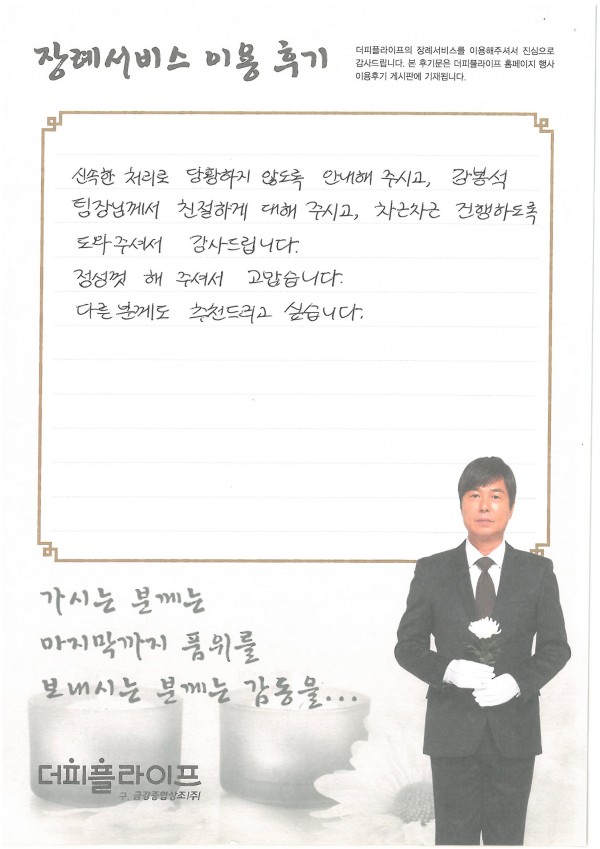 장례서비스 이용 후기
더피플라이프의 장례서비스를 이용해주셔서 진심으로
감사드립니다. 본 후기문은 더피플라이프 홈페이지 행사
이용후기 게시판에 기재됩니다.
신속한 처리로 당황하지 않도록 안내해 주시고, 강봉석
팀장님께서 친절하게 대해 주시고, 차근차근 진행하도록
도와주셔서 감사드립니다.
정성껏 해 주셔서 고맙습니다.
다른분께도 추천드리고 싶습니다.
가시는 분께는
마지막까지 품위를
보내시는 분께는 감동을...
더피플라이프
구. 금강종합상조(주)